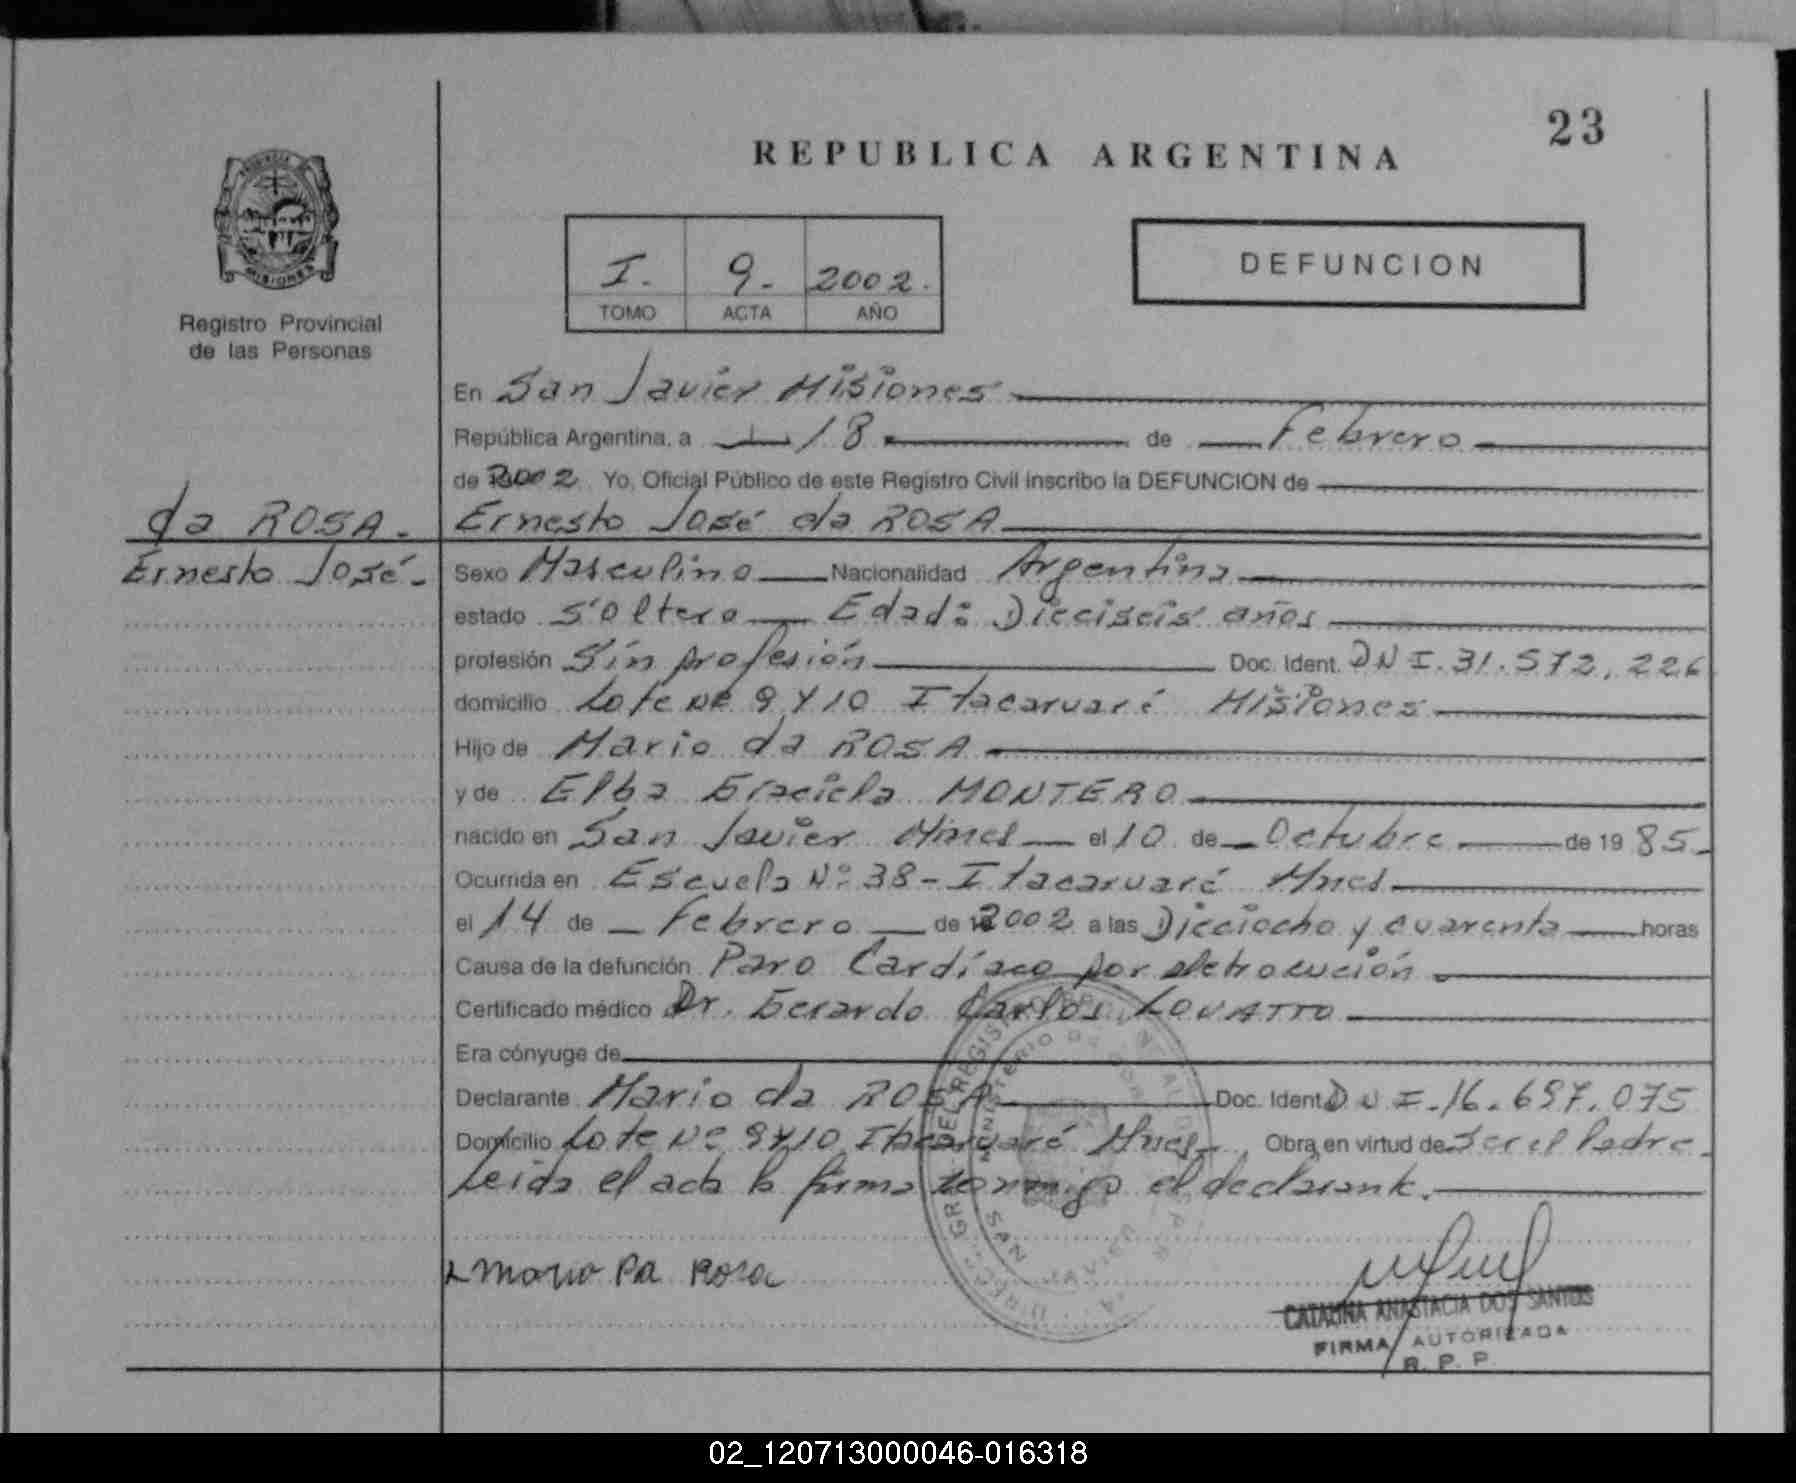 23
REPUBLICA ARGENTINA
I. 9. 2002.
TOMO ACTA AÑO
DEFUNCION
MISIONES
Registro Provincial
de las Personas
En San Javier Misiones
República Argentina, a 18 de Febrero
de 2002 Yo, Oficial Público de este Registro Civil inscribo la DEFUNCION de
da ROSA. Ernesto José da ROSA
Ernesto José. Sexo Masculino Nacionalidad Argentina
estado Soltero Edad: Dieciseis años
profesión Sin profesión Doc. Ident. DNI. 31.572.226
domicilio Lote Nº 9 y 10 Itacaruaré Misiones
Hijo de Mario da ROSA
y de Elba Graciela MONTERO
nacido en San Javier Mnes el 10 de Octubre de 1985.
Ocurrida en Escuela Nº 38 - Itacaruaré Mnes
el 14 de Febrero de 2002 a las Dieciocho y cuarenta horas
Causa de la defunción Paro Cardíaco por eletrocución
Certificado médico Dr. Gerardo Carlos LOVATTO
Era cónyuge de
Declarante Mario da ROSA Doc. Ident DNI. 16.697.075
Domicilio Lote Nº 9 y 10 Itacaruaré Mnes. Obra en virtud de Ser el Padre.
Leida el acta la firma conmigo el declarante.
Mario Da Rosa
CATALINA ANASTACIA DOS SANTOS
FIRMA AUTORIZADA
R. P. P.
02_120713000046-016318